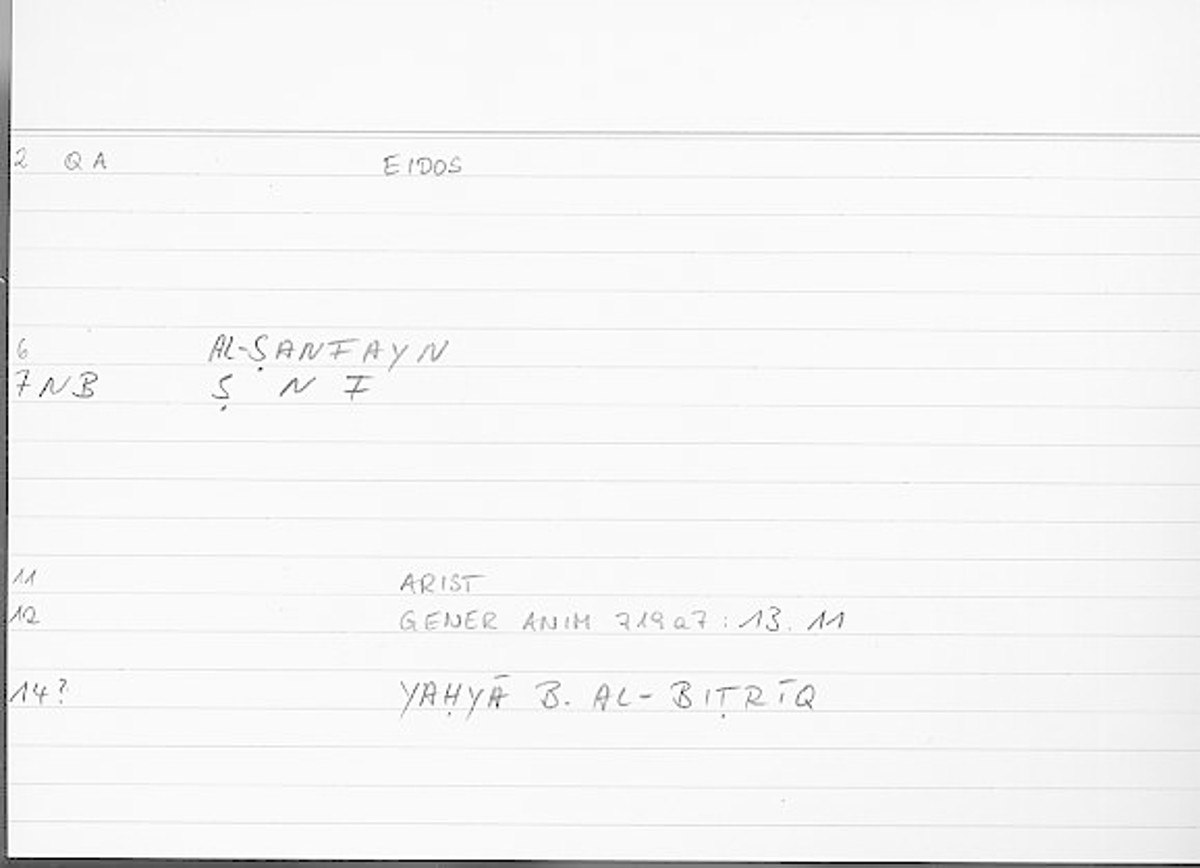 2 QA EIDOS
6 AL-ṢANFAYN
7 NB Ṣ N F
11 ARIST
12 GENER ANIM 719a7 : 13. 11
14? YAḤYĀ B. AL-BIṬRĪQ